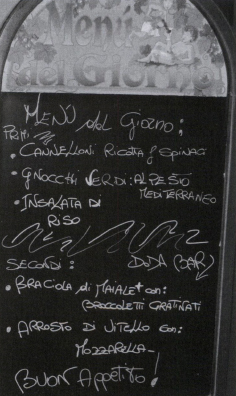 Menù
del Giorno
MENÙ del Giorno:
PRIMI
• CANNELLONI Ricotta & SPINACI
• GNOCCHI VERDI: AL PESTO
MEDITERRANEO
• INSALATA DI
RISO
SECONDI:
(BAR)
• BRACIOLA di MAIALE + con:
BROCCOLETTI GRATINATI
• ARROSTO DI VITELLO con:
MOZZARELLA
BUON APPETITO!